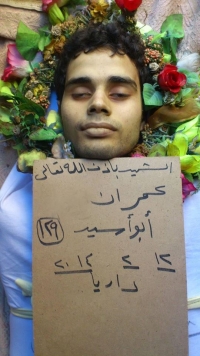 الشهيد بإذن الله تعالى
عمران
أبو أسيد ١٢٩
١٢ ٢ ٢٠١٤
داريا